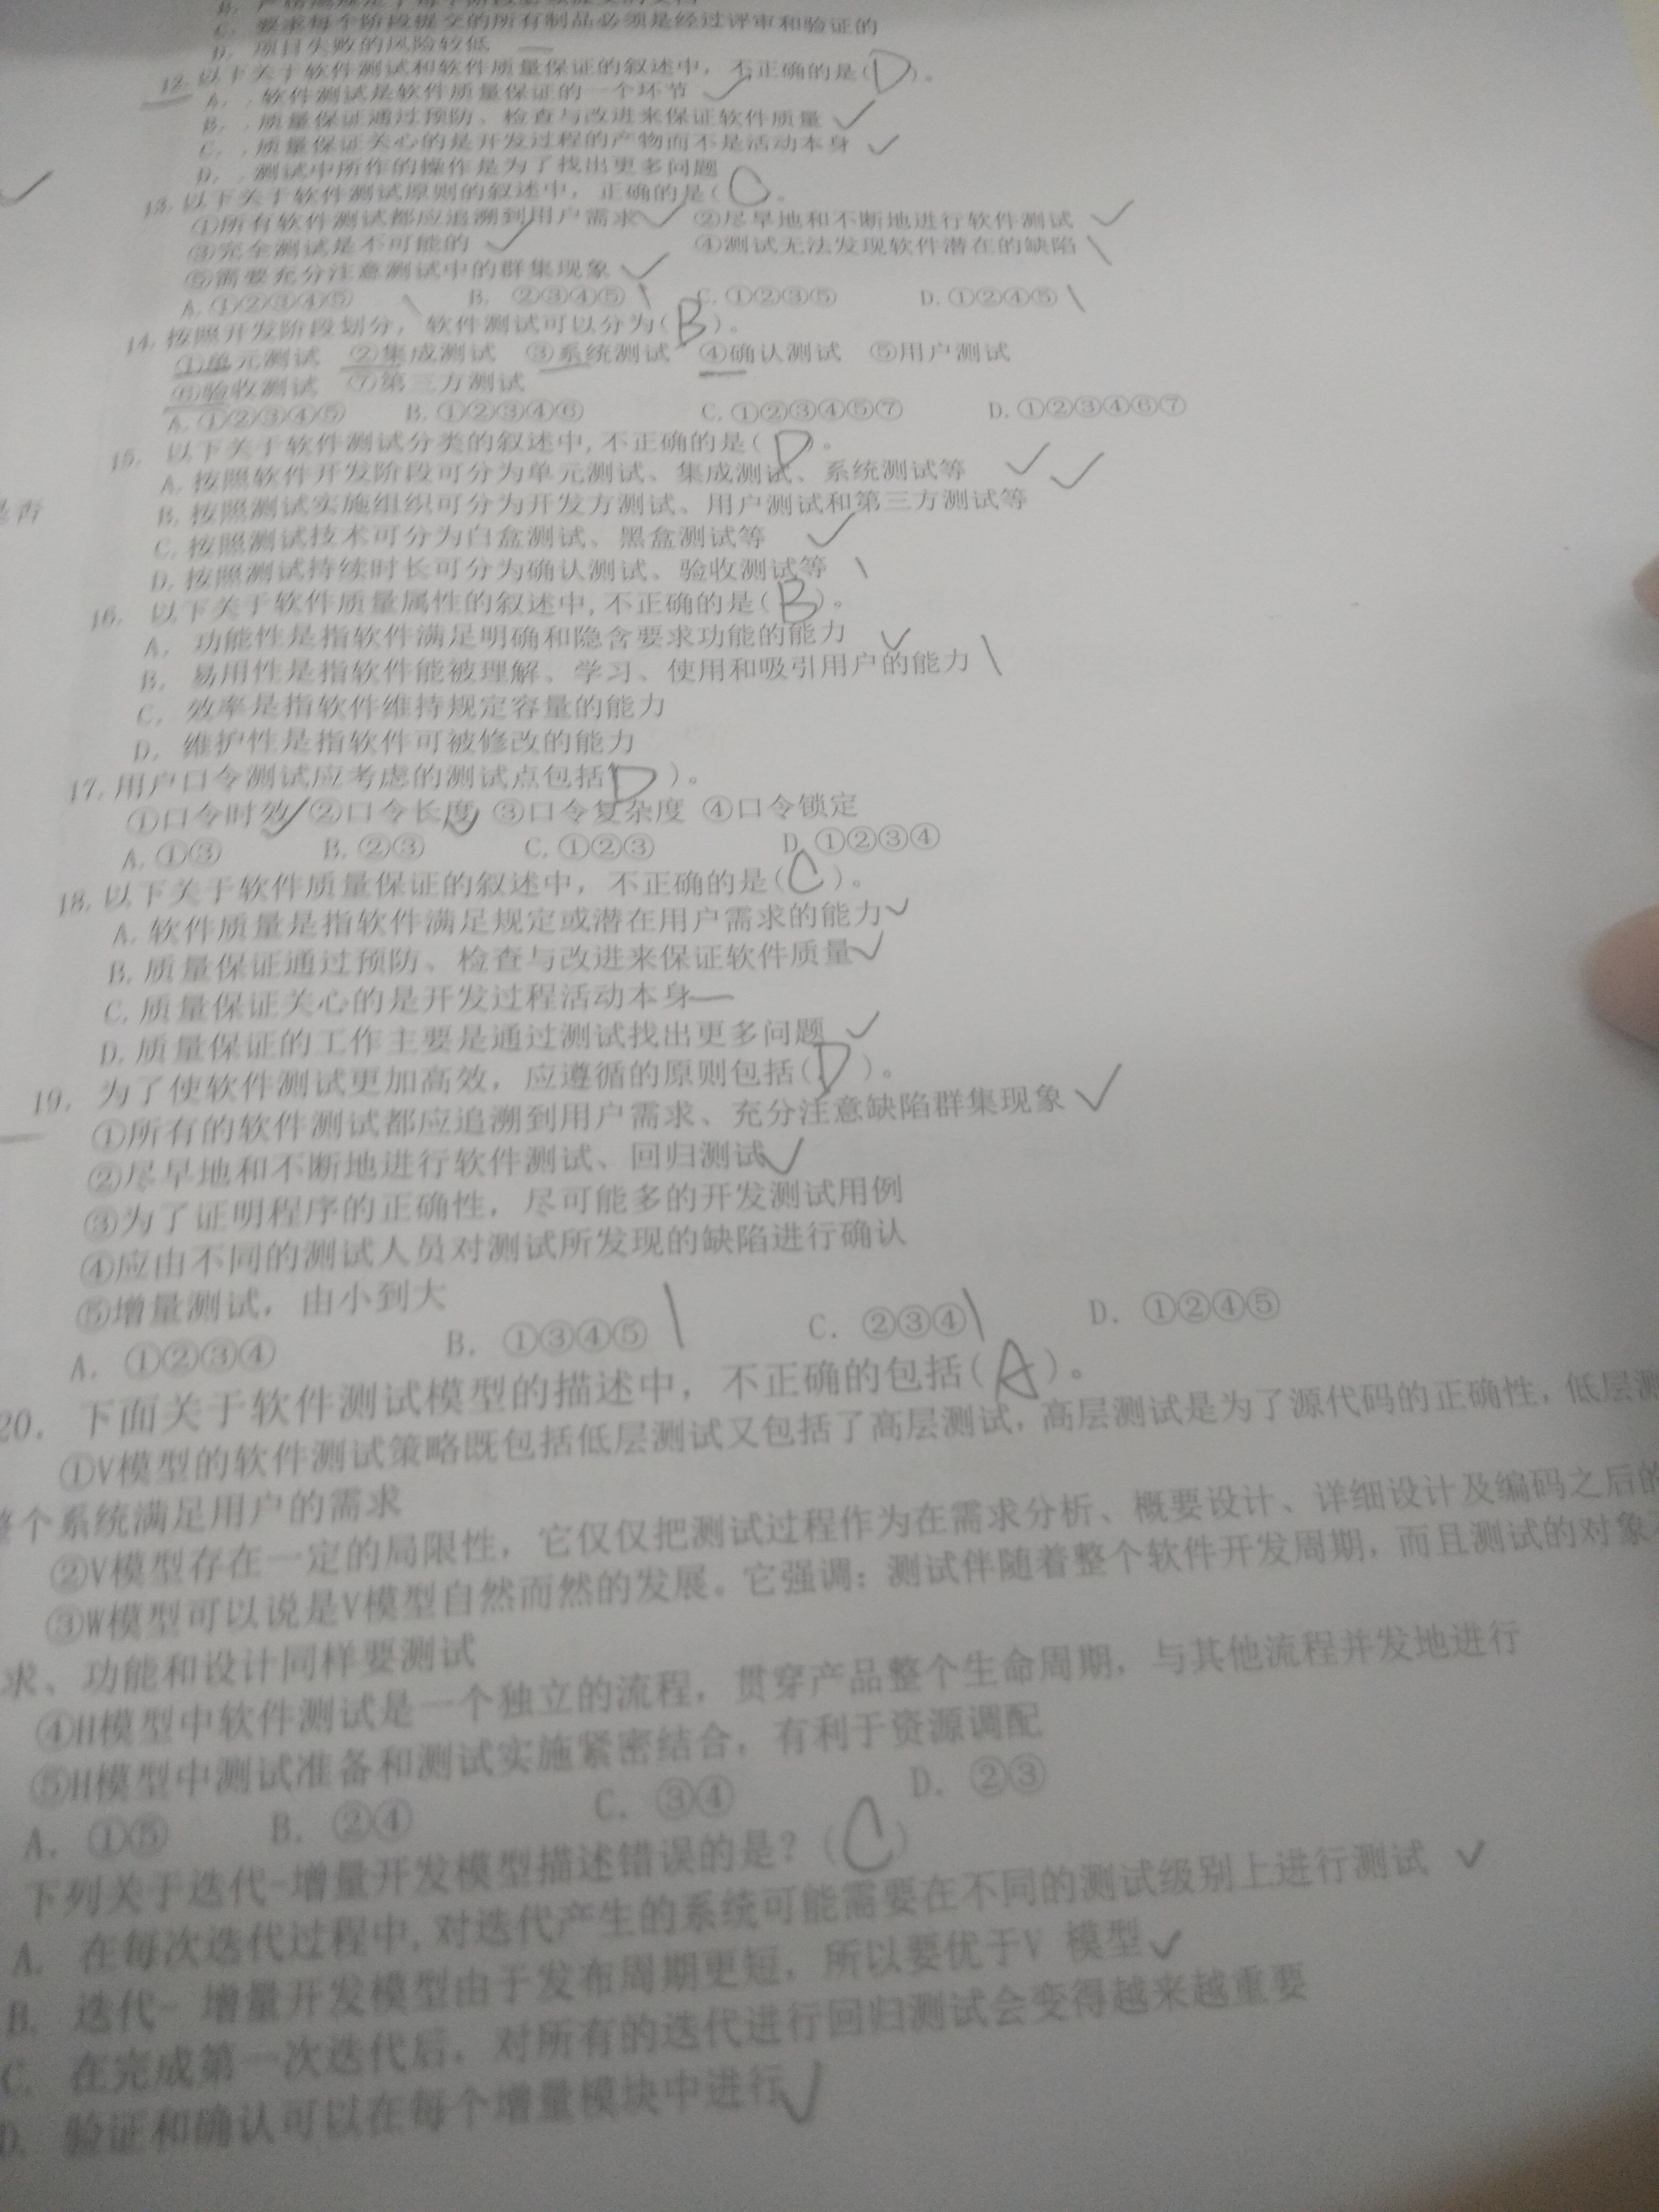 C. 要求每个阶段提交的所有制品必须是经过评审和验证的
D. 项目失败的风险较低
12. 以下关于软件测试和软件质量保证的叙述中，不正确的是(D)。
A. 软件测试是软件质量保证的一个环节
B. 质量保证通过预防、检查与改进来保证软件质量
C. 质量保证关心的是开发过程的产物而不是活动本身
D. 测试中所作的操作是为了找出更多问题
13. 以下关于软件测试原则的叙述中，正确的是(C)。
①所有软件测试都应追溯到用户需求 ②尽早地和不断地进行软件测试
③完全测试是不可能的 ④测试无法发现软件潜在的缺陷
⑤需要充分注意测试中的群集现象
A.①②③④⑤ B. ②③④⑤ C.①②③⑤ D.①②④⑤
14. 按照开发阶段划分，软件测试可以分为(B)。
①单元测试 ②集成测试 ③系统测试 ④确认测试 ⑤用户测试
⑥验收测试 ⑦第三方测试
A.①②③④⑤ B.①②③④⑥ C.①②③④⑤⑦ D.①②③④⑥⑦
15. 以下关于软件测试分类的叙述中,不正确的是(D)。
A.按照软件开发阶段可分为单元测试、集成测试、系统测试等
B.按照测试实施组织可分为开发方测试、用户测试和第三方测试等
C.按照测试技术可分为白盒测试、黑盒测试等
D.按照测试持续时长可分为确认测试、验收测试等
是否
16. 以下关于软件质量属性的叙述中,不正确的是(B)。
A. 功能性是指软件满足明确和隐含要求功能的能力
B. 易用性是指软件能被理解、学习、使用和吸引用户的能力
C. 效率是指软件维持规定容量的能力
D. 维护性是指软件可被修改的能力
17.用户口令测试应考虑的测试点包括(D)。
①口令时效 ②口令长度 ③口令复杂度 ④口令锁定
A.①③ B.②③ C.①②③ D.①②③④
18.以下关于软件质量保证的叙述中，不正确的是(C)。
A.软件质量是指软件满足规定或潜在用户需求的能力
B.质量保证通过预防、检查与改进来保证软件质量
C.质量保证关心的是开发过程活动本身
D.质量保证的工作主要是通过测试找出更多问题
19. 为了使软件测试更加高效，应遵循的原则包括(D)。
①所有的软件测试都应追溯到用户需求、充分注意缺陷群集现象
②尽早地和不断地进行软件测试、回归测试
③为了证明程序的正确性，尽可能多的开发测试用例
④应由不同的测试人员对测试所发现的缺陷进行确认
⑤增量测试，由小到大
A. ①②③④ B. ①③④⑤ C. ②③④ D. ①②④⑤
20. 下面关于软件测试模型的描述中，不正确的包括(A)。
①V模型的软件测试策略既包括低层测试又包括了高层测试，高层测试是为了源代码的正确性，低层测
整个系统满足用户的需求
②V模型存在一定的局限性，它仅仅把测试过程作为在需求分析、概要设计、详细设计及编码之后的
③W模型可以说是V模型自然而然的发展。它强调：测试伴随着整个软件开发周期，而且测试的对象
求、功能和设计同样要测试
④H模型中软件测试是一个独立的流程，贯穿产品整个生命周期，与其他流程并发地进行
⑤H模型中测试准备和测试实施紧密结合，有利于资源调配
A. ①⑤ B. ②④ C. ③④ D. ②③
下列关于迭代-增量开发模型描述错误的是？(C)
A. 在每次迭代过程中,对迭代产生的系统可能需要在不同的测试级别上进行测试
B. 迭代- 增量开发模型由于发布周期更短，所以要优于V 模型
C. 在完成第一次迭代后，对所有的迭代进行回归测试会变得越来越重要
D. 验证和确认可以在每个增量模块中进行